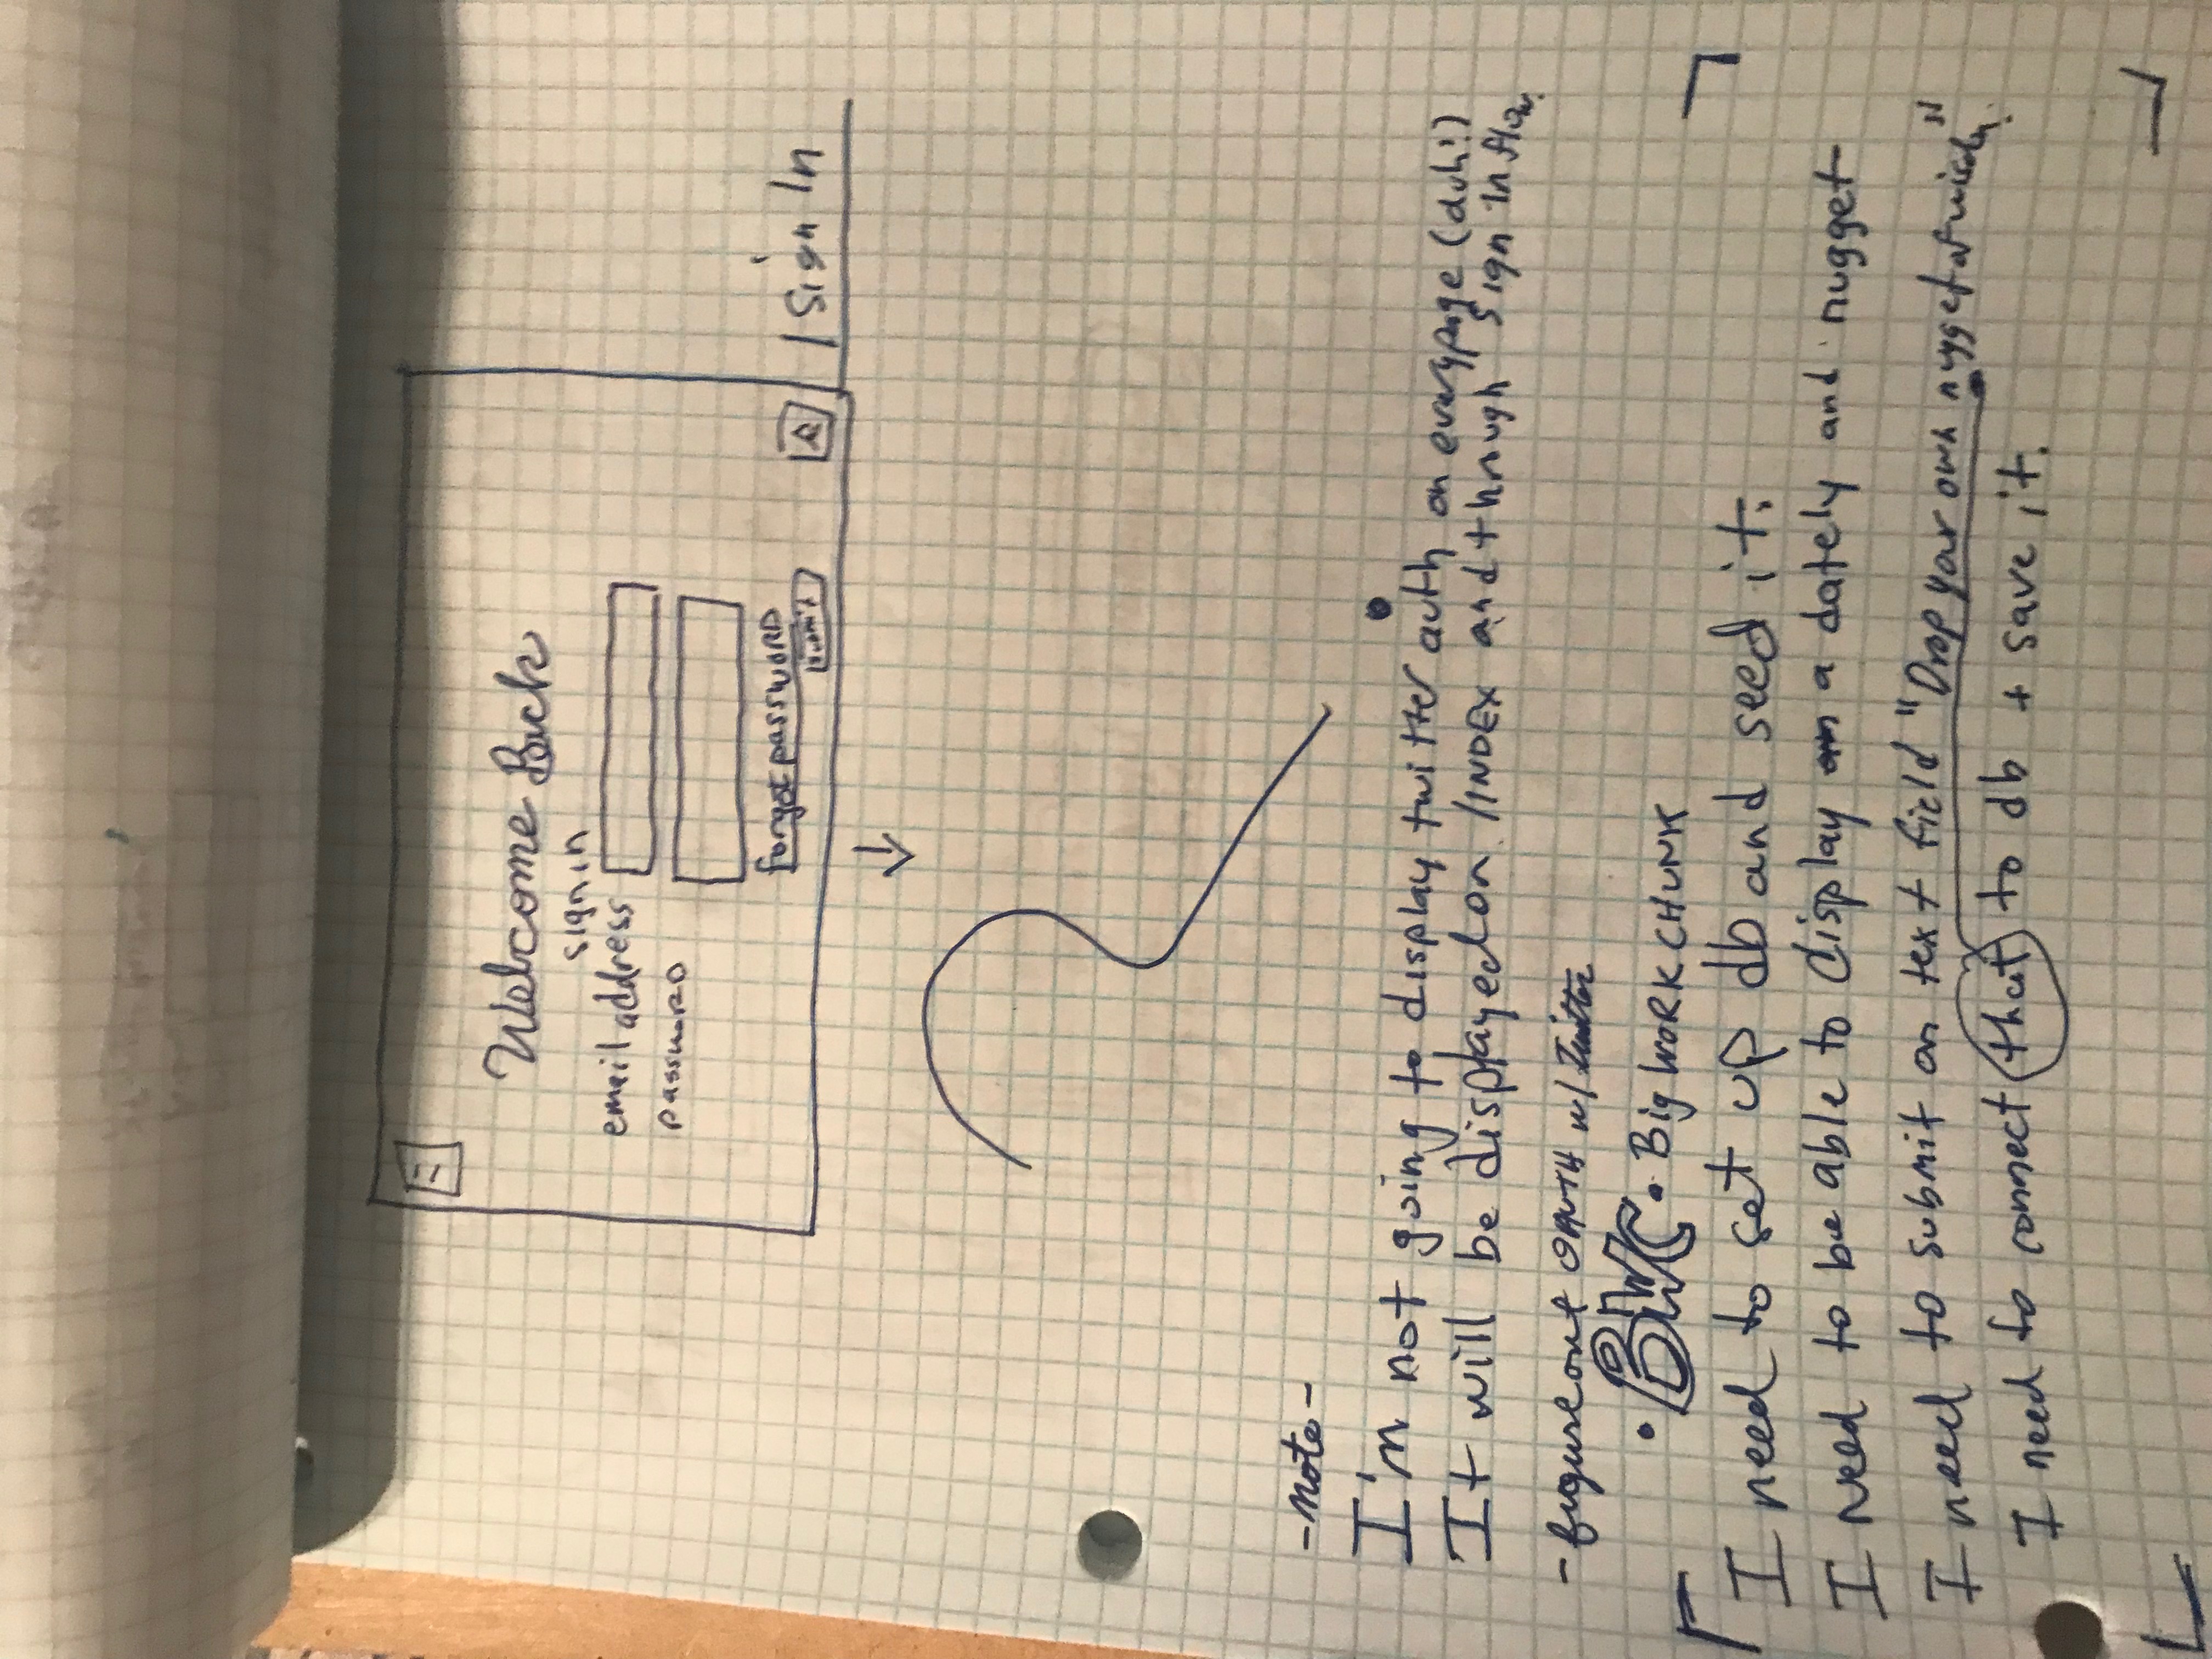 Welcome Back
sign in
email address
password
forgot password
submit
/Sign In
-note-
I'm not going to display twitter auth on everypage (duh!)
It will be displayed on /INDEX and through Sign in flow.
- figure out OAUTH w/ Twitter
• BWC • Big WORK CHUNK
I need to set up db and seed it.
I need to be able to display a dately and nugget
I need to submit on text field "Drop your own nugget of wisdm."
I need to connect that to db + save it.